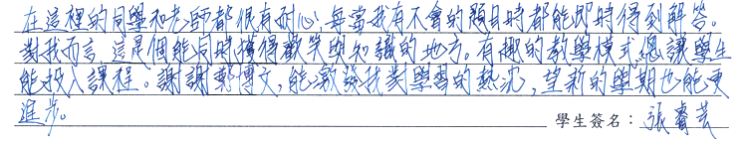 在這裡的同學和老師都很有耐心，每當我有不會的題目時都能即時得到解答。
對我而言，這是個能同時獲得歡笑與知識的地方。有趣的教學模式總讓學生
能投入課程。謝謝鄭博文，能激發我對學習的熱忱，望新的學期也能更
進步。
學生簽名：張睿芸